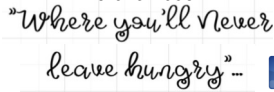 "Where you'll Never
leave hungry"...